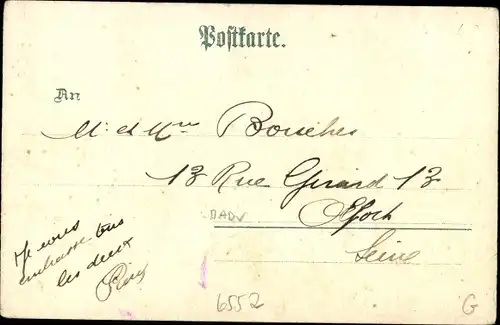 Postkarte.
An
M. et Mme Bouches
13 Rue Girard 13
Seine
Je vous
embrasse tous
les deux
DADV
6552
G